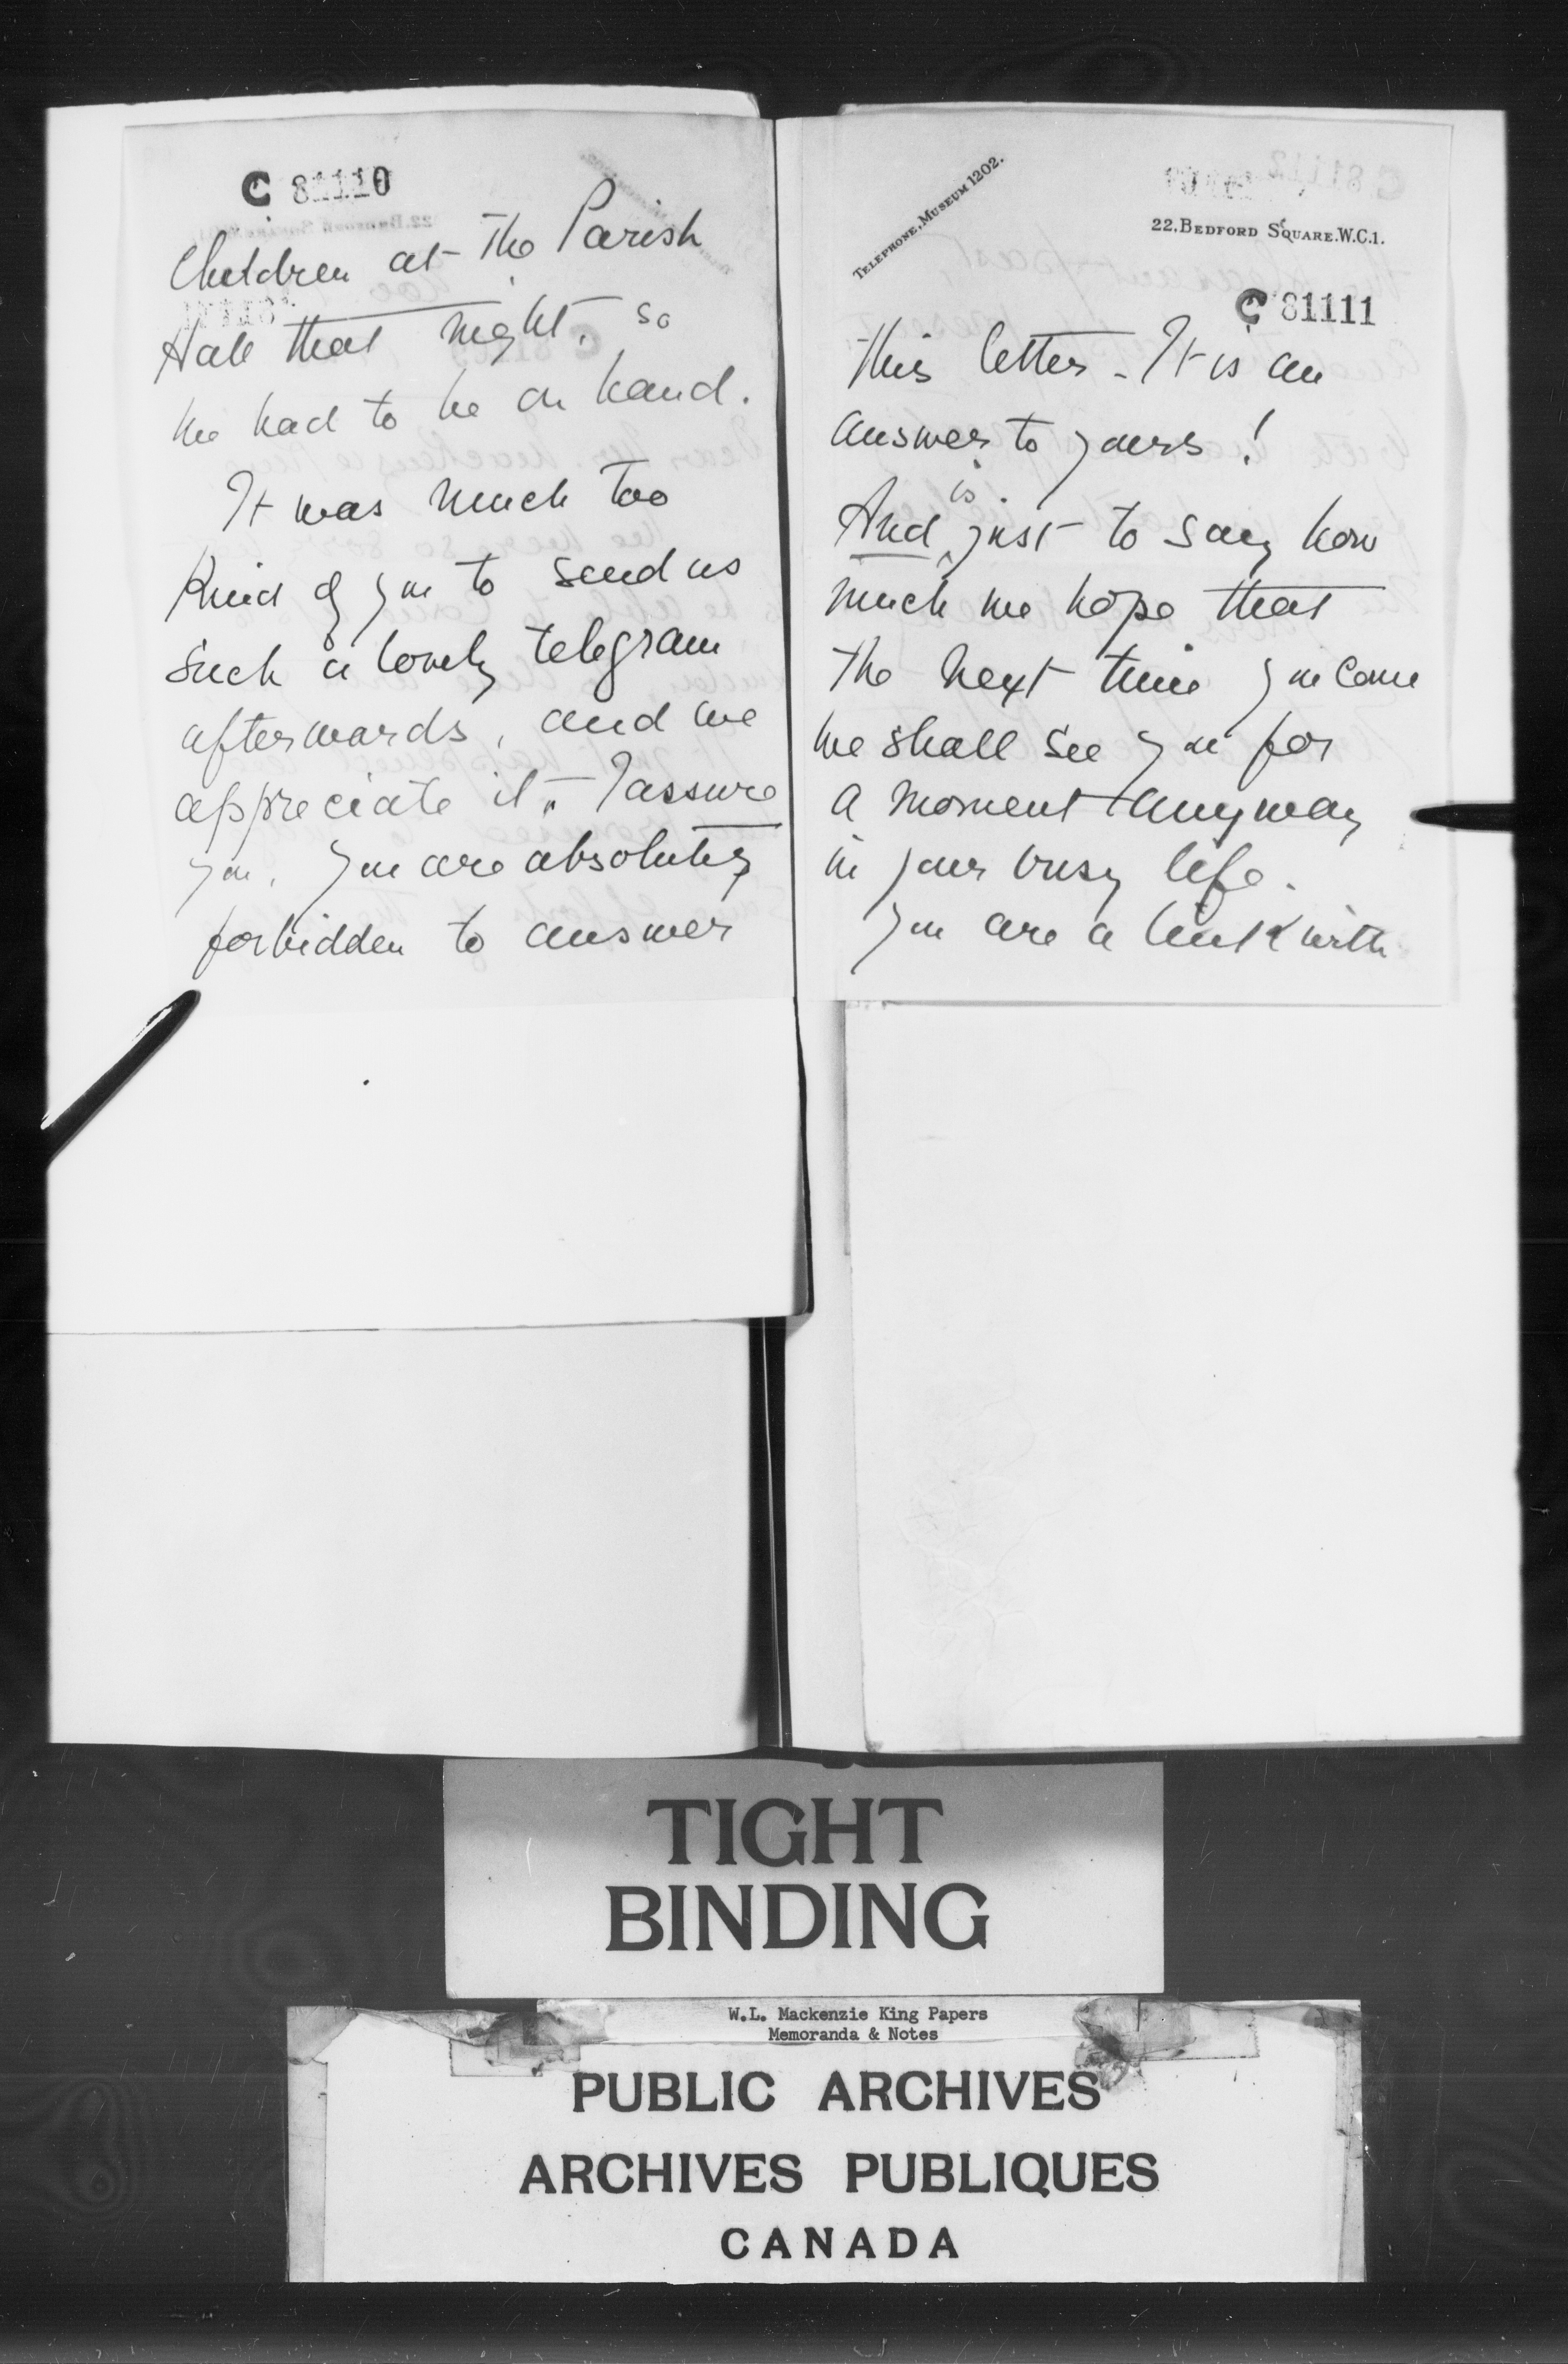 C 81110
Children at the Parish
Hall that night, so
we had to be on hand.
It was much too
kind of you to send us
such a lovely telegram
afterwards, and we
appreciate it, I assure
you. You are absolutely
forbidden to answer
TELEPHONE, MUSEUM 1202.
22, BEDFORD SQUARE. W.C.1.
C 81111
this letter - It is an
answer to yours!
And is just to say how
much we hope that
the next time you come
we shall see you for
a moment anyway
in your busy life.
You are a link with
TIGHT
BINDING
W.L. Mackenzie King Papers
Memoranda & Notes
PUBLIC ARCHIVES
ARCHIVES PUBLIQUES
CANADA